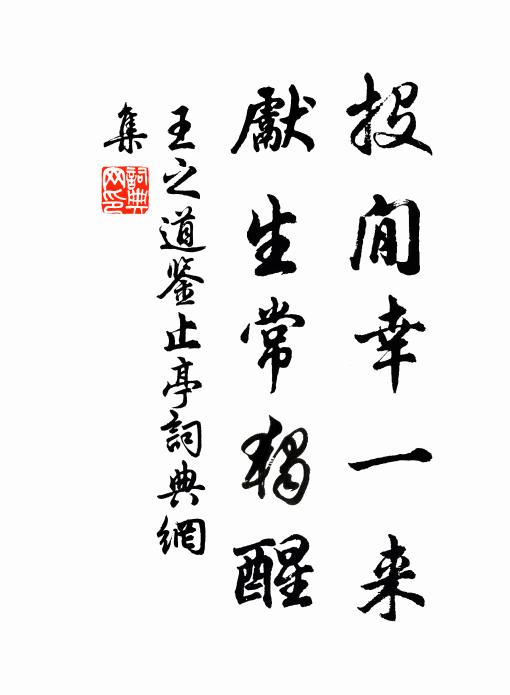 投閒幸一来
獻生常獨醒
王之道鉴止亭詞典網
集
詞典
网印